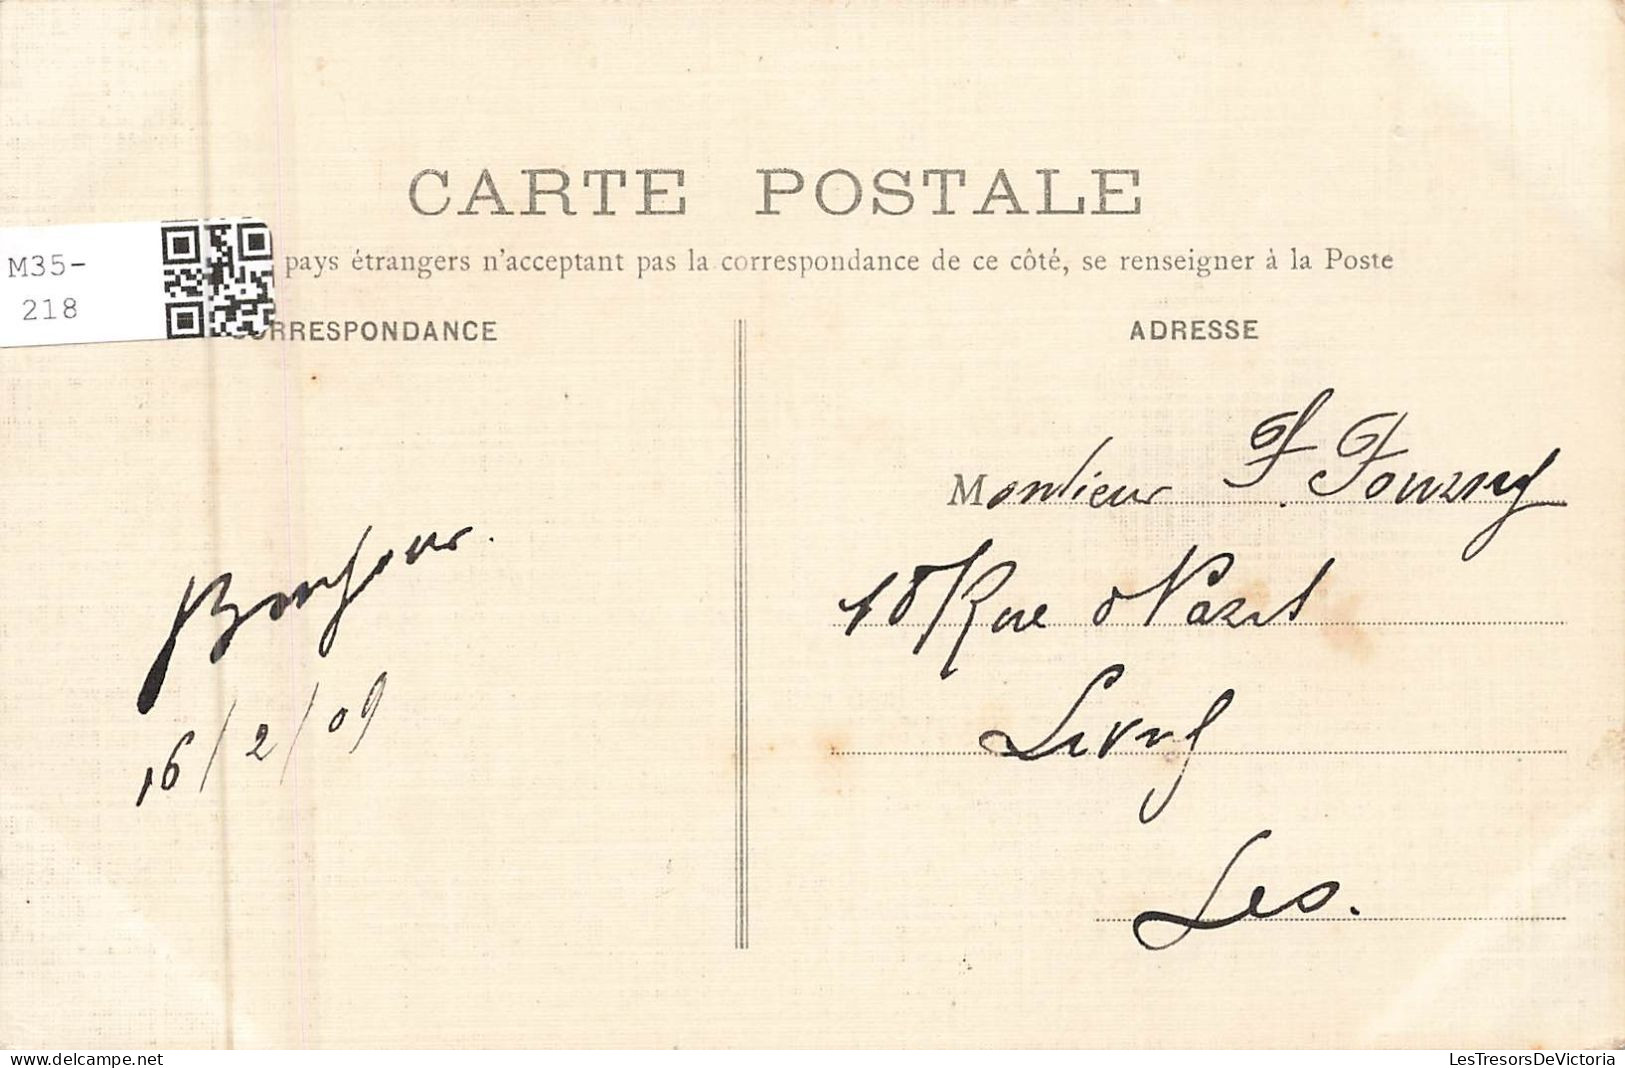 CARTE POSTALE
pays étrangers n'acceptant pas la correspondance de ce côté, se renseigner à la Poste
M35-
218
CORRESPONDANCE
ADRESSE
Bonjour.
16/2/09
Monsieur F
18 Rue
website: delcampe.net
LesTresorsDeVictoria